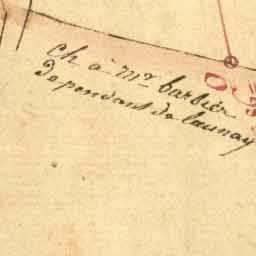 Ch à mr barbier
dependant de launay